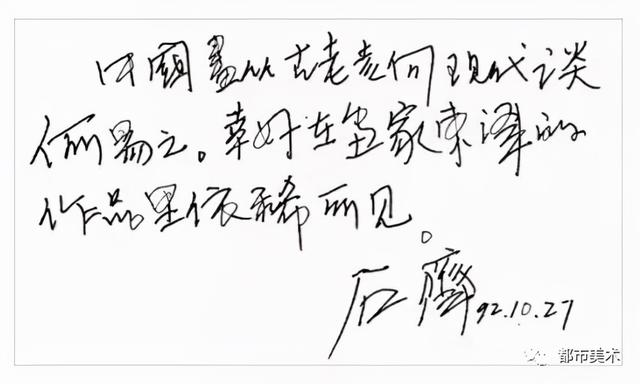 中國畫从古老走向现代谈
何易之。幸好在画家東泽的
作品里依稀所见。
石齊 92.10.27
都市美术